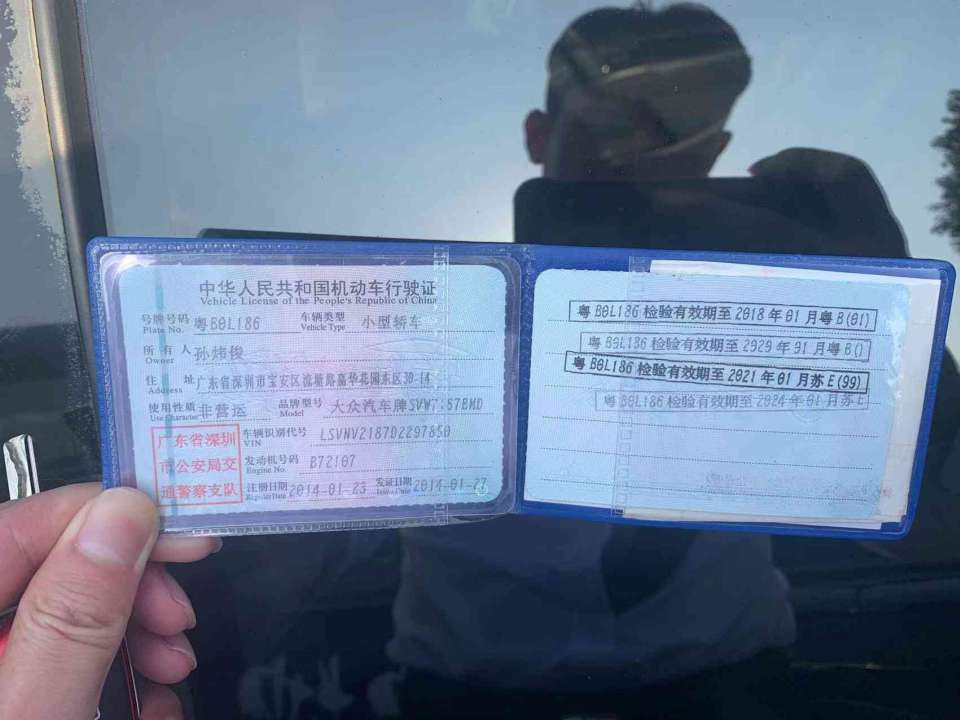 中华人民共和国机动车行驶证
Vehicle License of the People's Republic of China
号牌号码 粤B0L186 车辆类型 小型轿车
Plate No. Vehicle Type
所有人 孙炜俊
Owner
住址 广东省深圳市宝安区流塘路嘉华花园东区30-14
Address
使用性质 非营运 品牌型号 大众汽车牌
Use Character Model
广东省深圳
市公安局交
通警察支队
车辆识别代号 LSVNV2187D2297850
VIN
发动机号码 B72107
Engine No.
注册日期 2014-01-23 发证日期 2014-01-27
Register Date Issue Date
粤B0L186 检验有效期至 2018年01月粤B(01)
粤B0L186 检验有效期至 年01月粤B()
粤B0L186 检验有效期至 2021年01月苏E(99)
粤B0L186 检验有效期至 2024年01月苏E